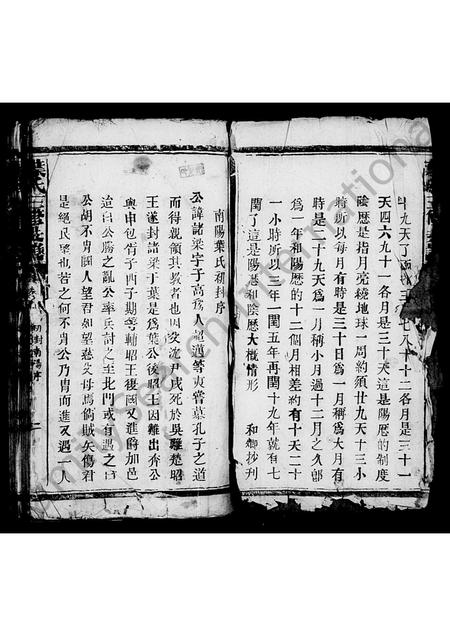 斗九天了
三 七八十十二各月是三十一
天四六九十一各月是三十天這是陽歷的制度
陰歷是指月亮繞地球一周約須廿九天十三小
時所以每月有時是三十日為一月稱為大月有
時是二十九天為一月稱小月過十二月之久郎
為一年和陽歷的十二個月相差約有十天二十
一小時所以三年一閏五年再閏十九年就有七
閏了這是陽歷和陰歷大概情形
和卿抄刋
南陽葉氏初封序
公諱諸梁字子高為人
嘗慕孔子之道
而得親領其教者也因父沈尹戌死於吳難楚昭
王遂封諸梁于葉是為葉公後昭王因難出奔公
與申包胥子西子期等輔昭王復國又進爵加邑
迨白公勝之亂公率兵討之至北門或有遇之曰
公胡不冑國人望君如望慈父母焉倘賊矢傷君
是絕民望也若之何不冑公乃冑而進又遇一人
葉氏三修
初封南陽序
ilySearch International